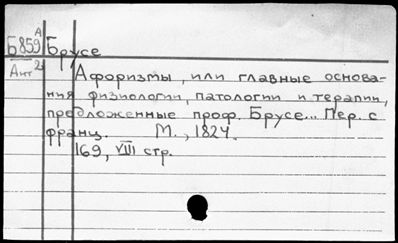 Б859 А Брусе
Ант 2
Афоризмы, или главные основа-
ния физиологии, патологии и терапии,
предложенные проф. Брусе... Пер. с
франц. М., 1824.
169, VIII стр.